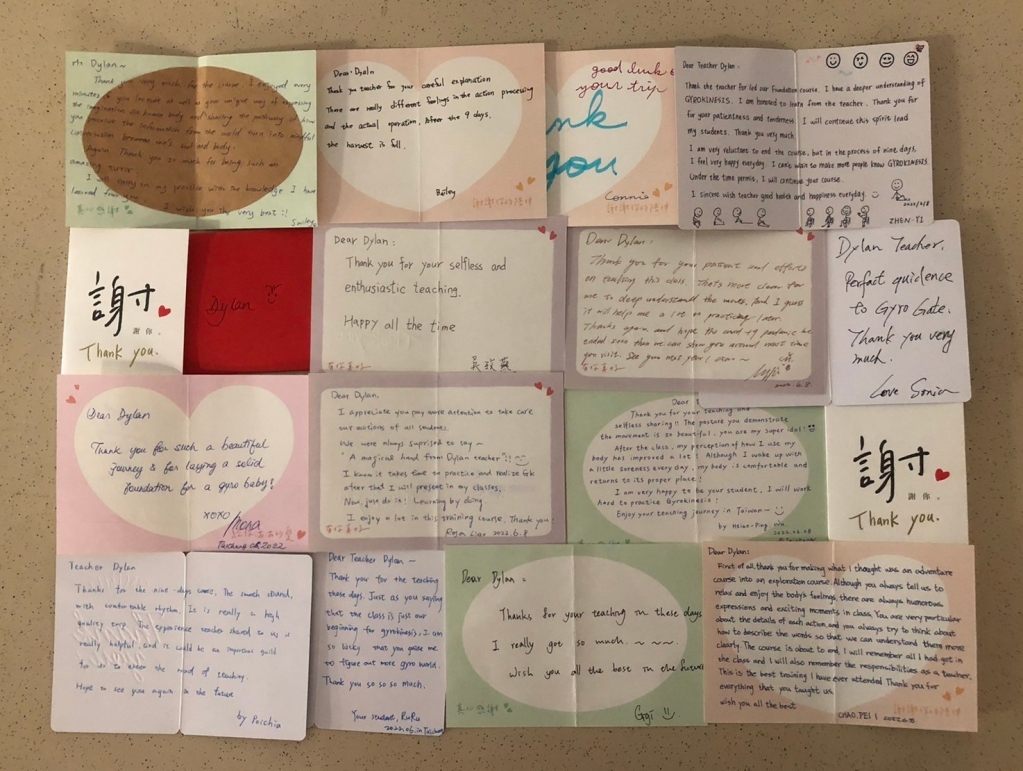 Mr Dylan~
Thank you very much for the course. I enjoyed every
Again. Thank you so much for being such an
amazing mirror
I will carry on my practice with the knowledge I have
learned from you
I wish you the very best!!
Smiley
真心感謝
Dear Dyaln
Thank you teacher for your careful explanation
There are really different feelings in the action processing
and the actual operation. After the 9 days.
the harvest is full.
Bailey
good luck
your trip
nk
you
Connie
Dear Teacher Dylan:
Thank the teacher for led our foundation course. I have a deeper understanding of
GYROKINESIS. I am honored to learn from the teacher. Thank you for
your patientness and tenderness. I will continue this spirit lead
my students. Thank you very much.
I am very reluctant to end the course, but in the process of nine days,
I feel very happy everyday. I can't wait to make more people know GYROKINESIS.
Under the time permis, I will continue your course.
I sincere wish teacher good health and happiness everyday.
2022/6/8
ZHEN-YI
謝
謝你。
Thank you.
Dylan
Dear Dylan:
Thank you for your selfless and
enthusiastic teaching.
Happy all the time
有你真好
Dear Dylan:
Thank you for your patient and efforts
on teaching this class. That's more clear for
me to deep understand the moves. And I guess
it will help me a lot on practicing later.
Thanks again and hope the covid-19 pandemic be
ended soon then we can show you around next time
you visit. See you next year
2022.6.8
Dylan Teacher.
Perfect guidence
to Gyro Gate.
Thank you very
much.
Love Sonia
Dear Dylan
Thank you for such a beautiful
journey & for laying a solid
foundation for a gyro baby!
XOXO
Taichung 2022
Dear Dylan.
I appreciate you pay more attention to take care
our motions of all students.
We were always suprised to say~
"A magical hand from Dylan teacher"!!
I know it takes time to practice and realize GK
after that I will present in my classes.
Now, just do it! Learning by doing.
I enjoy a lot in this training course. Thank you
有你真好
2022.6.8
Dear
Thank you for your teaching and
selfless sharing!! The posture you demonstrate
the movement is so beautiful, you are my super idol!
After the class, my perception of how I use my
body has improved a lot! Although I wake up with
a little soreness every day, my body is comfortable and
returns to its proper place!
I am very happy to be your student, I will work
hard to practice Gyrokinesis!
Enjoy your teaching journey in Taiwan~
謝
謝你。
Thank you.
Teacher Dylan
Thanks for the nine-days times. The smooth
with comfortable rhythm. It is really a high
quality trip. The experience teacher shared to us is
really helpful, and it could be an important guild
for us to enter the road of teaching.
Hope to see you again in the future
by Peichin
Dear Teacher Dylan~
Thank you for the teaching
these days. Just as you saying
that the class is just our
beginning for gyrokinesis. I am
so lucky that you guide me
to figure out more gyro world.
Thank you so so so much.
Your student, RuRu
2022.06. in Taichung
Dear Dylan:
Thanks for your teaching in these days
I really got so much. ~ ~ ~.
Wish you all the best in the future
真心感謝
Gigi
Dear Dylan:
First of all, thank you for making what I thought was an adventure
course into an exploration course. Although you always tell us to
relax and enjoy the body's feelings, there are always humorous
expressions and exciting moments in class. You are very particular
about the details of each action, and you always try to think about
how to describe the words so that we can understand them more
clearly. The course is about to end, I will remember all I had got in
the class and I will also remember the responsibilities as a teacher.
This is the best training I have ever attended Thank you for
everything that you taught us.
wish you all the best
CHAO, PEI I 2022.6.8